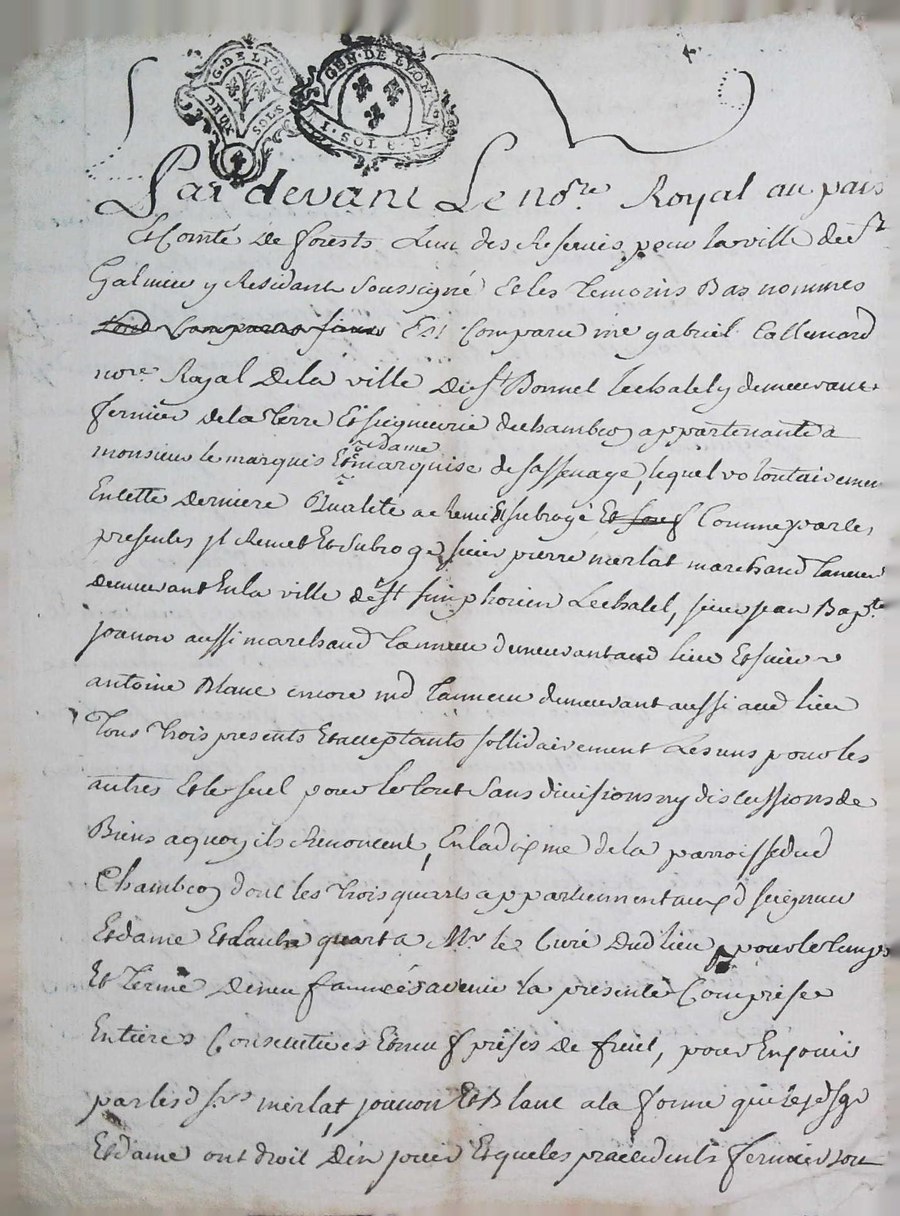 G·DE LYON
DEUX SOLS
GEN·DE LYON
I·SOL 6·D·
Par devant Le no.re Royal au païs
Et Comté De forests Lun des Reservés pour la ville de st
Galmier y Residant soussigné Et les temoins Bas nommés
Est Comparu me gabriel Callemard
no.re Royal De la ville De st Bonnet lechatel y demeurant
fermier de la terre Et seigneurie de chambeo appartenante a
monsieur le marquis Et dame marquise de sassenage, lequel volontairement
En cette derniere Qualité a Remis Et subrogé Et Comme par les
presentes jl Remet Et subroge sieur pierre merlat marchand tanneur
demeurant En la ville de st simphorien Lechatel, sieur jean Bapte
jouanon aussi marchand tanneur demeurant aud lieu Et sieur
antoine Blanc encore md tanneur demeurant aussi aud lieu
Tous trois presents Et acceptants sollidairement Les uns pour les
autres Et le seul pour le tout sans divisions ny discussions de
Biens a quoy ils Renoncent, En la dixme de la parroisse dud
Chambeo dont les trois quarts appartiennent auxd seigneur
Et dame Et lautre quart a Mr le Curé Dud lieu, pour le temps
Et terme De neuf années a venir la presente Comprise
Entieres Consecutives Et neuf prises de fruit, pour En jouir
par lesd srs merlat, jouanon Et Blanc a la forme que lesd sgr
Et dame ont droit d'en jouir Et que les precedents fermiers ont